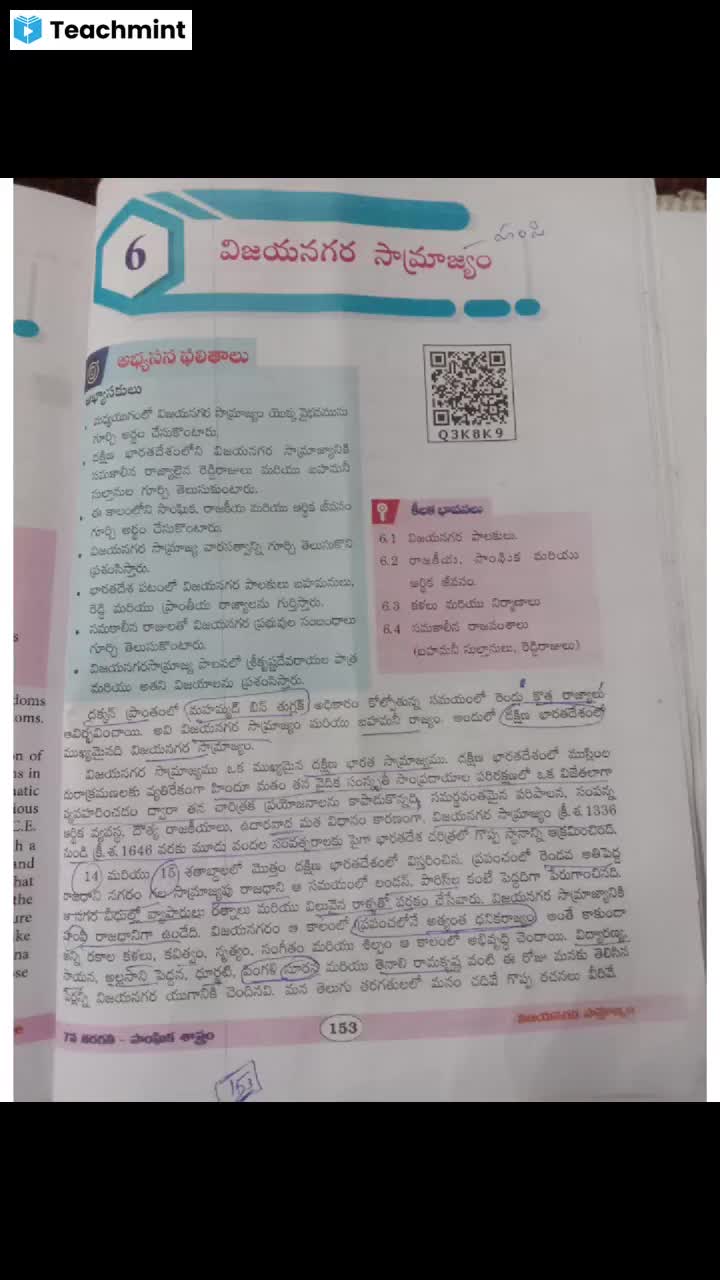 Teachmint
హంపి
6
విజయనగర సామ్రాజ్యం
అభ్యసన ఫలితాలు
అభ్యాసకులు
• మధ్యయుగంలో విజయనగర సామ్రాజ్యం యొక్క వైభవమును
గూర్చి అర్థం చేసుకొంటారు.
• దక్షిణ భారతదేశంలోని విజయనగర సామ్రాజ్యానికి
సమకాలీన రాజ్యాలైన రెడ్డిరాజులు మరియు బహమనీ
సుల్తానుల గూర్చి తెలుసుకుంటారు.
• ఈ కాలంలోని సాంఘిక, రాజకీయ మరియు ఆర్థిక జీవనం
గూర్చి అర్థం చేసుకొంటారు.
• విజయనగర సామ్రాజ్య వారసత్వాన్ని గూర్చి తెలుసుకొని
ప్రశంసిస్తారు.
• భారతదేశ పటంలో విజయనగర పాలకులు బహమనులు,
రెడ్డి మరియు ప్రాంతీయ రాజ్యాలను గుర్తిస్తారు.
• సమకాలీన రాజులతో విజయనగర ప్రభువుల సంబంధాలు
గూర్చి తెలుసుకొంటారు.
• విజయనగరసామ్రాజ్య పాలనలో శ్రీకృష్ణదేవరాయల పాత్ర
మరియు అతని విజయాలను ప్రశంసిస్తారు.
Q3K8K9
కీలక భావనలు
6.1 విజయనగర పాలకులు.
6.2 రాజకీయ, సాంఘిక మరియు
ఆర్థిక జీవనం.
6.3 కళలు మరియు నిర్మాణాలు
6.4 సమకాలీన రాజవంశాలు
(బహమనీ సుల్తానులు, రెడ్డిరాజులు)
దక్కన్ ప్రాంతంలో మహమ్మద్ బిన్ తుగ్లక్ అధికారం కోల్పోతున్న సమయంలో రెండు కొత్త రాజ్యాలు
ఆవిర్భవించాయి. అవి విజయనగర సామ్రాజ్యం మరియు బహమనీ రాజ్యం. అందులో దక్షిణ భారతదేశంలో
ముఖ్యమైనది విజయనగర సామ్రాజ్యం.
విజయనగర సామ్రాజ్యము ఒక ముఖ్యమైన దక్షిణ భారత సామ్రాజ్యము. దక్షిణ భారతదేశంలో ముస్లింల
దురాక్రమణలకు వ్యతిరేకంగా హిందూ మతం తన వైదిక సంస్కృతీ సాంప్రదాయాల పరిరక్షణలో ఒక విజేతలాగా
వ్యవహరించడం ద్వారా తన చారిత్రక ప్రయోజనాలను కాపాడుకొన్నది. సమర్థవంతమైన పరిపాలన, సంపన్న
ఆర్థిక వ్యవస్థ, దౌత్య రాజకీయాలు, ఉదారవాద మత విధానం కారణంగా, విజయనగర సామ్రాజ్యం క్రీ.శ.1336
నుండి క్రీ.శ.1646 వరకు మూడు వందల సంవత్సరాలకు పైగా భారతదేశ చరిత్రలో గొప్ప స్థానాన్ని ఆక్రమించింది.
14 మరియు 15 శతాబ్దాలలో మొత్తం దక్షిణ భారతదేశంలో విస్తరించిన, ప్రపంచంలో రెండవ అతిపెద్ద
రాజధాని నగరం గల సామ్రాజ్యపు రాజధాని ఆ సమయంలో లండన్, పారిస్‌ల కంటే పెద్దదిగా పేరుగాంచినది.
ఆ నగర వీధుల్లో వ్యాపారులు రత్నాలు మరియు విలువైన రాళ్ళతో వర్తకం చేసేవారు. విజయనగర సామ్రాజ్యానికి
హంపి రాజధానిగా ఉండేది. విజయనగరం ఆ కాలంలో ప్రపంచంలోనే అత్యంత ధనికరాజ్యం అంతే కాకుండా
అన్ని రకాల కళలు, కవిత్వం, నృత్యం, సంగీతం మరియు శిల్పం ఆ కాలంలో అభివృద్ధి చెందాయి. విద్యారణ్య,
సాయన, అల్లసాని పెద్దన, ధూర్జటి, పింగళి సూరన మరియు తెనాలి రామకృష్ణ వంటి ఈ రోజు మనకు తెలిసిన
పేర్లన్నీ విజయనగర యుగానికి చెందినవి. మన తెలుగు తరగతులలో మనం చదివే గొప్ప రచనలు వీరివే.
7వ తరగతి - సాంఘిక శాస్త్రం
153
విజయనగర సామ్రాజ్యం
153